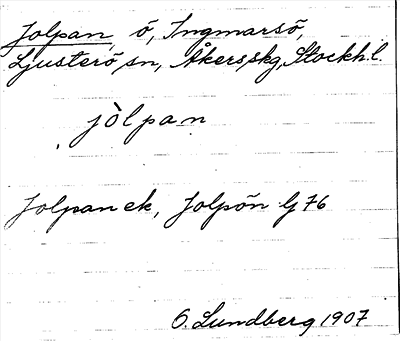 Jolpan ö, Ingmarsö,
Ljusterö sn, Åkers skg, Stockh. l.
jòlpan
Jolpan ek, Jolpön G 76
O. Lundberg 1907